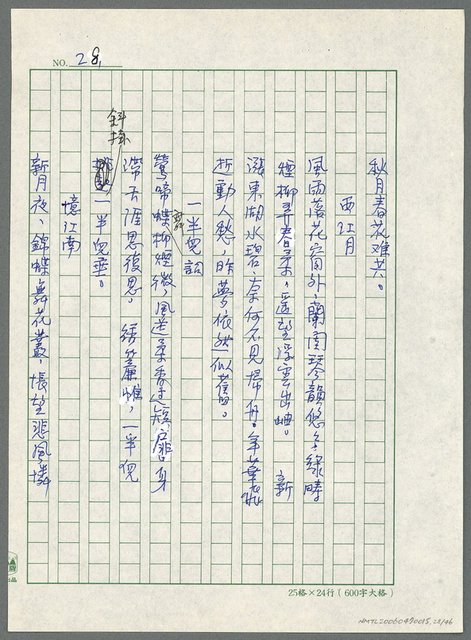 NO. 28
秋月春花难共。
西江月
風雨落花窗外，蘭闺琴韻悠，綠畴
煙柳弄春柔，遥望浮雲出岫。 新
漲東湖水碧，奈何不見歸舟。年華
折動人愁，昨夢依然似舊。
一半兒 詞
鶯啼蝶 柳煙微，風送柔香 身
滯天涯思復思。 繡簾帷，一半兒
斜掛
一半兒垂。
憶江南
新月夜，錦蝶舞花叢，悵望悲風
25格×24行（600字大格）
NMTL20060490015, 28/46